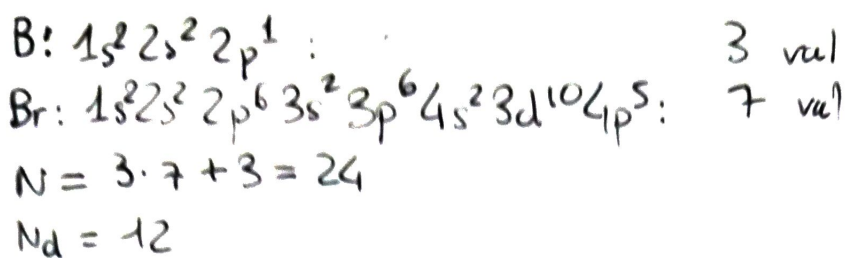 B: 1s² 2s² 2p¹ : 3 val
Br: 1s² 2s² 2p⁶ 3s² 3p⁶ 4s² 3d¹⁰ 4p⁵: 7 val
N = 3·7 + 3 = 24
Nd = 12